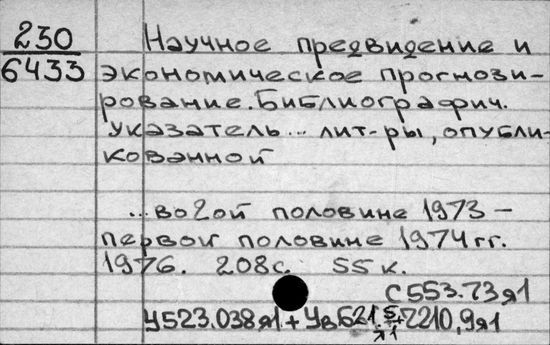 230
6433
Научное предвидение и
экономическое прогнози-
рование. Библиографич.
указатель... лит-ры, опубли-
кованной
...во 2ой половине 1973 -
первой половине 1974 гг.
1976. 208 с. 55 к.
С553.73я1
У523.038я1 + Ув621